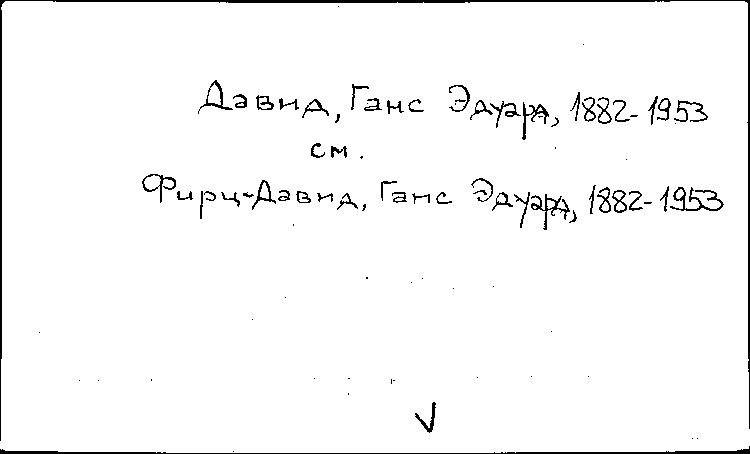 Давид, Ганс Эдуард, 1882-1953
см.
Фирц-Давид, Ганс Эдуард, 1882-1953
V